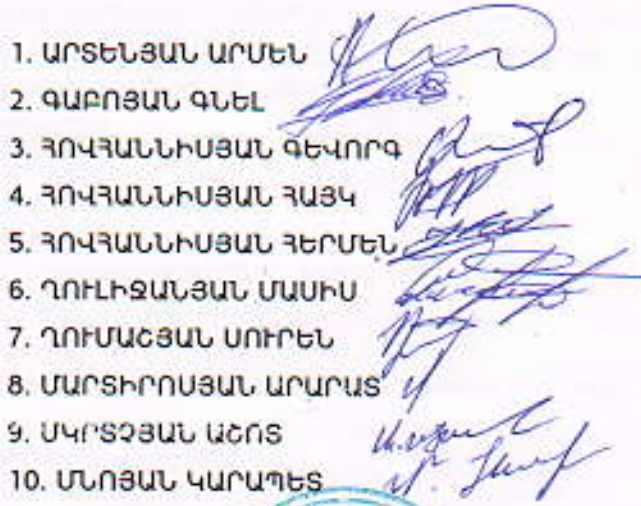 1. ԱՐՏԵՆՅԱՆ ԱՐՄԵՆ
2. ԳԱԲՈՅԱՆ ԳՆԵԼ
3. ՀՈՎՀԱՆՆԻՍՅԱՆ ԳԵՎՈՐԳ
4. ՀՈՎՀԱՆՆԻՍՅԱՆ ՀԱՅԿ
5. ՀՈՎՀԱՆՆԻՍՅԱՆ ՀԵՐՄԵՆ
6. ՂՈՒԼԻՋԱՆՅԱՆ ՄԱՍԻՍ
7. ՂՈՒՄԱՇՅԱՆ ՍՈՒՐԵՆ
8. ՄԱՐՏԻՐՈՍՅԱՆ ԱՐԱՐԱՏ
9. ՄԿՐՏՉՅԱՆ ԱՇՈՏ
10. ՄՆՈՅԱՆ ԿԱՐԱՊԵՏ